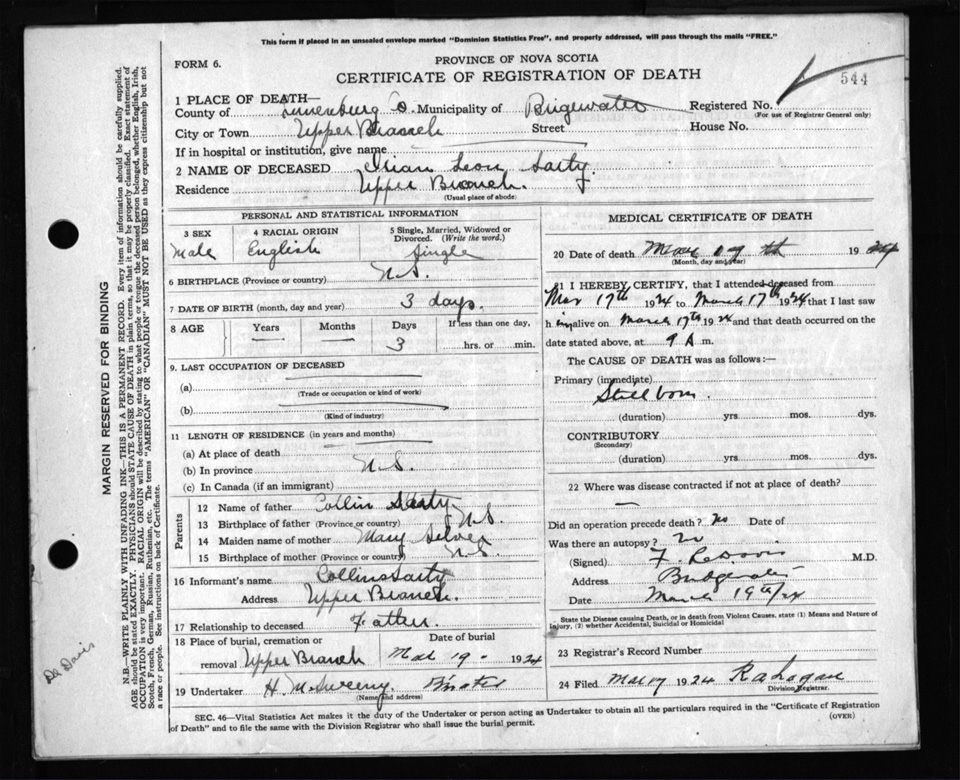 This form if placed in an unsealed envelope marked "Dominion Statistics Free", and properly addressed, will pass through the mails "FREE."
FORM 6.
PROVINCE OF NOVA SCOTIA
CERTIFICATE OF REGISTRATION OF DEATH
544
1 PLACE OF DEATH—
County of Lunenburg Co. Municipality of Brigewater Registered No.
(For use of Registrar General only)
City or Town Upper Branch Street House No.
If in hospital or institution, give name
2 NAME OF DECEASED Leon Sarty.
Residence Upper Branch.
(Usual place of abode)
PERSONAL AND STATISTICAL INFORMATION
3 SEX
Male
4 RACIAL ORIGIN
English
5 Single, Married, Widowed or Divorced. (Write the word.)
Single
6 BIRTHPLACE (Province or country) N.S.
7 DATE OF BIRTH (month, day and year) 3 days.
8 AGE Years Months Days If less than one day,
3 hrs. or min.
9. LAST OCCUPATION OF DECEASED
(a)
(Trade or occupation or kind of work)
(b)
(Kind of industry)
11 LENGTH OF RESIDENCE (in years and months)
(a) At place of death
(b) In province N.S.
(c) In Canada (if an immigrant)
Parents
12 Name of father Collin Sarty
13 Birthplace of father (Province or country) N.S.
14 Maiden name of mother Mary Silver
15 Birthplace of mother (Province or country) N.S.
16 Informant's name Collin Sarty
Address Upper Branch.
17 Relationship to deceased Father.
18 Place of burial, cremation or Date of burial
removal Upper Branch Mar 19 - 1924
19 Undertaker H. McSweeny, B'water
(Name and address)
MEDICAL CERTIFICATE OF DEATH
20 Date of death 19
(Month, day and year)
21 I HEREBY CERTIFY, that I attended deceased from
Mar 17th 1924 to March 17th 1924 that I last saw
h im alive on March 17th 1924 and that death occurred on the
date stated above, at 9 A m.
The CAUSE OF DEATH was as follows:—
Primary (immediate)
Still born.
(duration) yrs. mos. dys.
CONTRIBUTORY
(Secondary)
(duration) yrs. mos. dys.
22 Where was disease contracted if not at place of death?
—
Did an operation precede death? no Date of
Was there an autopsy? no
(Signed) F. R. Davis M.D.
Address Bridgewater
Date March 19th/24
State the Disease causing Death, or in death from Violent Causes. state (1) Means and Nature of Injury, (2) whether Accidental, Suicidal or Homicidal
23 Registrar's Record Number
24 Filed Mar 19 1924
Division Registrar.
SEC. 46—Vital Statistics Act makes it the duty of the Undertaker or person acting as Undertaker to obtain all the particulars required in the "Certificate of Registration
of Death" and to file the same with the Division Registrar who shall issue the burial permit.
(OVER)
MARGIN RESERVED FOR BINDING
N.B.—WRITE PLAINLY WITH UNFADING INK—THIS IS A PERMANENT RECORD. Every item of information should be carefully supplied.
AGE should be stated EXACTLY. PHYSICIANS should STATE CAUSE OF DEATH in plain terms, so that it may be properly classified. Exact statement of
OCCUPATION is very important. RACIAL ORIGIN will be described by stating to what people or tongue the deceased person belonged, whether English, Irish,
Scotch, French, German, Russian, Ruthenian, etc. The terms "AMERICAN" OR "CANADIAN" MUST NOT BE USED as they express citizenship but not
a race or people. See instructions on back of Certificate.
Dr Davis